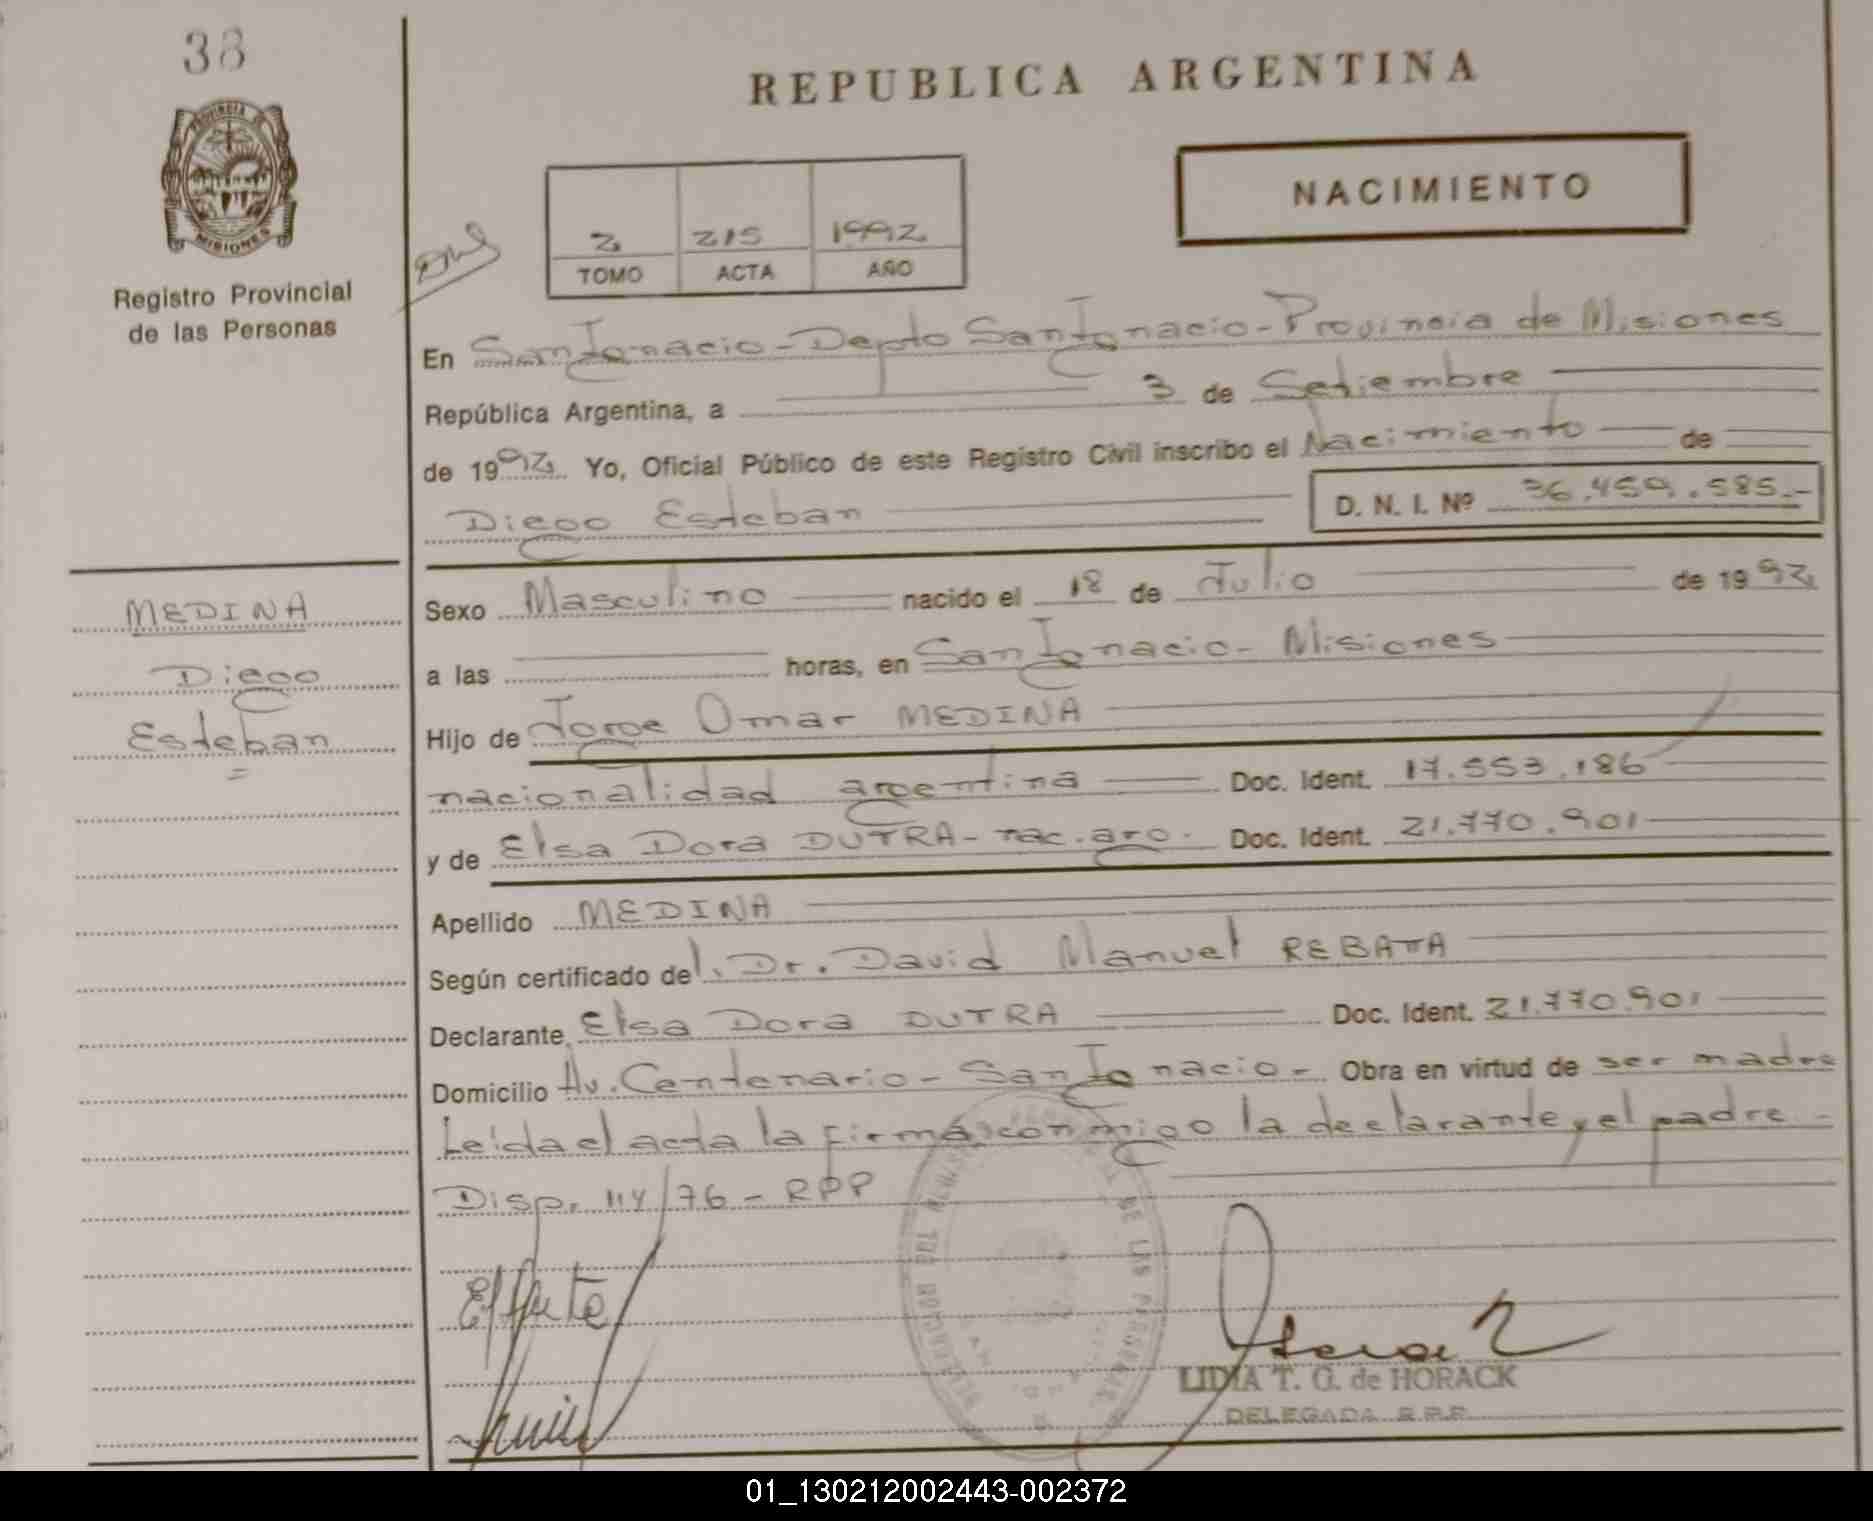 38
REPUBLICA ARGENTINA
PROVINCIA DE
MISIONES
Registro Provincial
de las Personas
NACIMIENTO
2 215 1992
TOMO ACTA AÑO
En San Ignacio - Depto San Ignacio - Provincia de Misiones
República Argentina, a 3 de Setiembre
de 1992. Yo, Oficial Público de este Registro Civil inscribo el Nacimiento de
Diego Esteban D. N. I. Nº 36.459.585.-
MEDINA
Diego
Esteban
Sexo Masculino nacido el 18 de Julio de 1992
a las horas, en San Ignacio - Misiones
Hijo de Jorge Omar MEDINA
nacionalidad argentina Doc. Ident. 17.553.186
y de Elsa Dora DUTRA - nac. arg. Doc. Ident. 21.770.901
Apellido MEDINA
Según certificado del. Dr. David Manuel REBATA
Declarante, Elsa Dora DUTRA Doc. Ident. 21.770.901
Domicilio Av. Centenario - San Ignacio - Obra en virtud de ser madre
Leída el acta la firman conmigo la declarante y el padre -
Disp. 114/76 - RPP
LIDIA T. G. de HORACK
DELEGADA R.P.P.
01_130212002443-002372